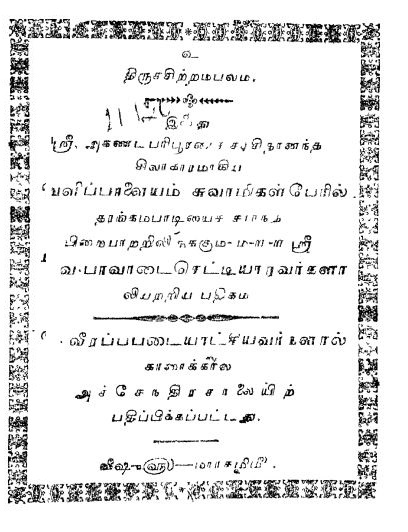 உ
திருச்சிற்றம்பலம்.
இஃது
ஸ்ரீ. அகண்டபரிபூரண சச்சிதானந்த
சிவாகாரமாகிய
வலிப்பாளையம் சுவாமிகள்பேரில்
தரங்கம்பாடியைச் சார்ந்த
பிறையாற்றிலிருக்கும்-ம-௱-௱-ஸ்ரீ
வ. பாவாடைசெட்டியாரவர்களா
லியற்றிய பதிகம்
வீரப்பபடையாட்சியவர்களால்
காரைக்கால்
அச்சேந்திரசாலையிற்
பதிப்பிக்கப்பட்டது.
விஷு௵—மார்கழிமீ.